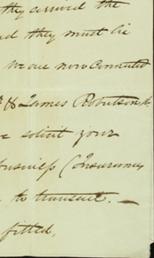 they arrived the
d they must lie
we are now Connected
& James Robertson &
e solicit your
business (Insurances
to transact. —
fitted,